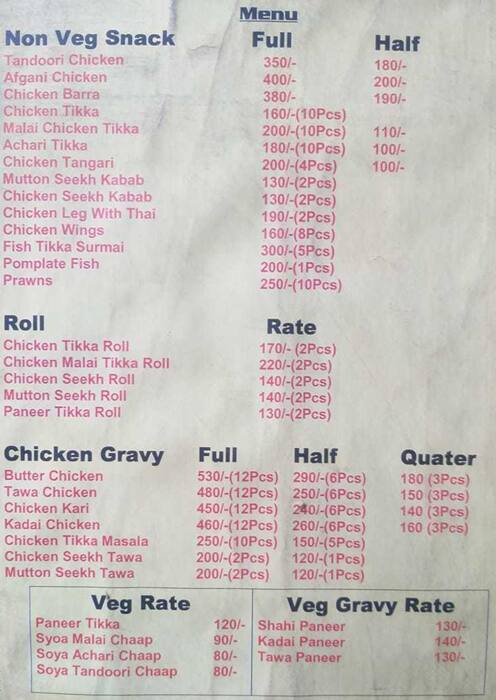 Menu
Non Veg Snack Full Half
Tandoori Chicken 350/- 180/-
Afgani Chicken 400/- 200/-
Chicken Barra 380/- 190/-
Chicken Tikka 160/-(10Pcs)
Malai Chicken Tikka 200/-(10Pcs) 110/-
Achari Tikka 180/-(10Pcs) 100/-
Chicken Tangari 200/-(4Pcs) 100/-
Mutton Seekh Kabab 130/-(2Pcs)
Chicken Seekh Kabab 130/-(2Pcs)
Chicken Leg With Thai 190/-(2Pcs)
Chicken Wings 160/-(8Pcs)
Fish Tikka Surmai 300/-(5Pcs)
Pomplate Fish 200/-(1Pcs)
Prawns 250/-(10Pcs)
Roll Rate
Chicken Tikka Roll 170/- (2Pcs)
Chicken Malai Tikka Roll 220/-(2Pcs)
Chicken Seekh Roll 140/-(2Pcs)
Mutton Seekh Roll 140/-(2Pcs)
Paneer Tikka Roll 130/-(2Pcs)
Chicken Gravy Full Half Quater
Butter Chicken 530/-(12Pcs) 290/-(6Pcs) 180 (3Pcs)
Tawa Chicken 480/-(12Pcs) 250/-(6Pcs) 150 (3Pcs)
Chicken Kari 450/-(12Pcs) 240/-(6Pcs) 140 (3Pcs)
Kadai Chicken 460/-(12Pcs) 260/-(6Pcs) 160 (3Pcs)
Chicken Tikka Masala 250/-(10Pcs) 150/-(5Pcs)
Chicken Seekh Tawa 200/-(2Pcs) 120/-(1Pcs)
Mutton Seekh Tawa 200/-(2Pcs) 120/-(1Pcs)
Veg Rate
Paneer Tikka 120/-
Syoa Malai Chaap 90/-
Soya Achari Chaap 80/-
Soya Tandoori Chaap 80/-
Veg Gravy Rate
Shahi Paneer 130/-
Kadai Paneer 140/-
Tawa Paneer 130/-